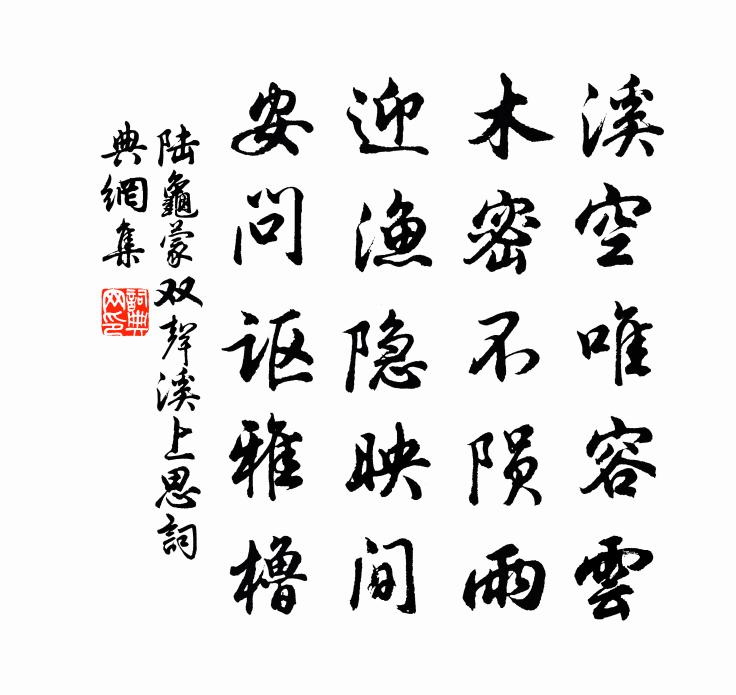 溪空唯容雲
木密不陨雨
迎渔隐映间
安问讴雅橹
陆龜蒙双聲溪上思詞
典網集
詞典网印